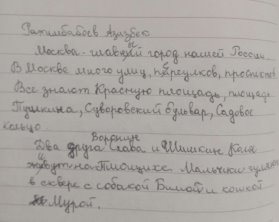 Рахимбабаев Азизбек
Москва - главный город нашей России.
В Москве много улиц, переулков, проспектов
Все знают Красную площадь, площадь
Пушкина, Суворовский бульвар, Садовое
кольцо.
Воронин
Два друга Слава и Шишкин Коля
живут на Плющихе. Мальчики гуляют
в сквере с собакой Бимой и кошкой
Мурой.